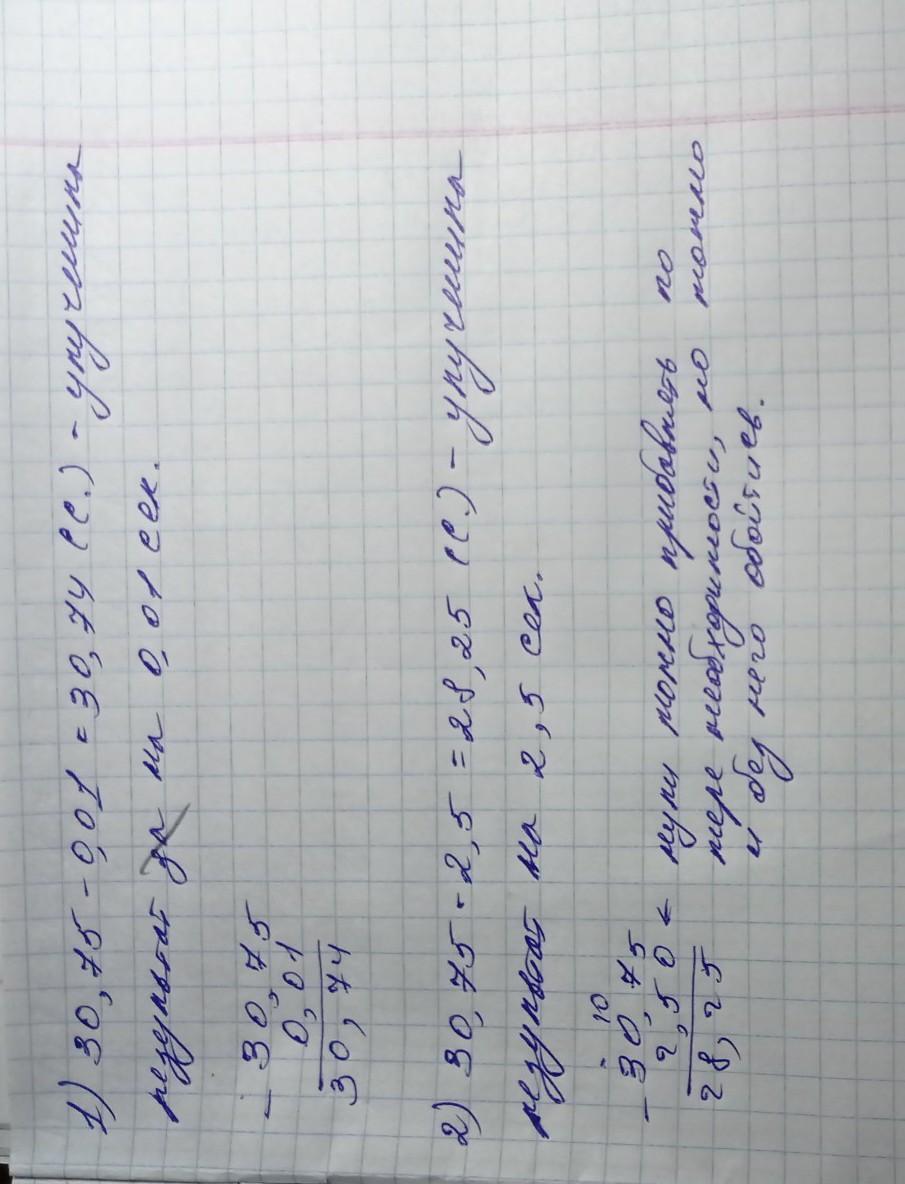 1) 30,75 - 0,01 = 30,74 (с.) - улучшила
результат за на 0,01 сек.
- 30,75
0,01
30,74
2) 30,75 - 2,5 = 28,25 (с.) - улучшила
результат на 2,5 сек.
10
- 30,75
2,50 ← нули можно прибавлять по
28,25 мере необходимости, но можно
и без него обойтись.